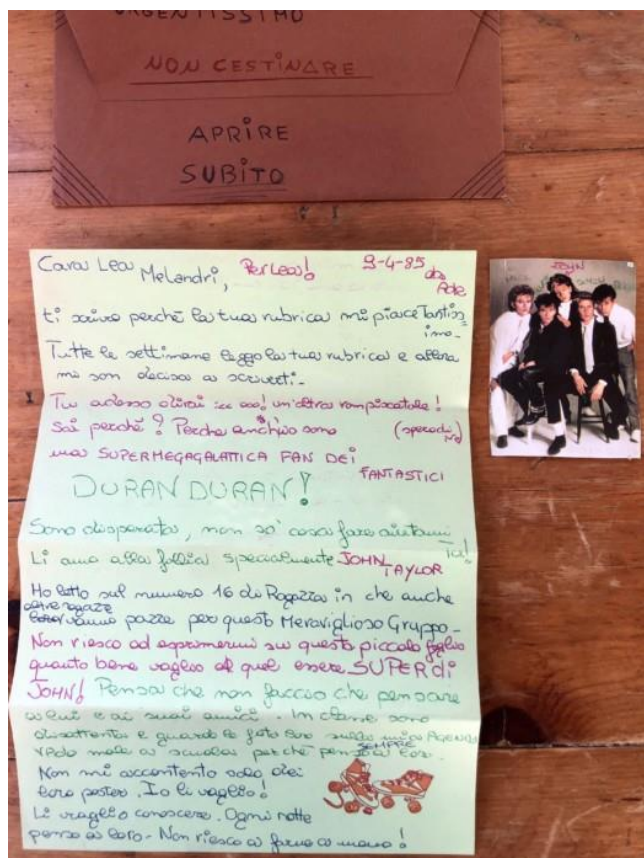 URGENTISSIMO
NON CESTINARE
APRIRE
SUBITO
Cara Lea Melandri, Per Lea! 9-4-85
da Ade
ti scrivo perché la tua rubrica mi piace Tantiss
imo.
Tutte le settimane leggo la tua rubrica e allora
mi son decisa a scriverti.
Tu adesso dirai: un'altra rompiscatole!
Sai perché? Perché anch'io sono (spero di
No)
una SUPERMEGAGALATTICA FAN DEI
FANTASTICI
DURAN DURAN!
Sono disperata, non so' cosa fare aiutami
TU!
Li amo alla follia specialmente JOHN
TAYLOR
Ho letto sul numero 16 di Ragazza in che anche
altre ragazze
vanno pazze per questo Meraviglioso Gruppo-
Non riesco ad esprimermi su questo piccolo foglio
quanto bene voglio a quel essere SUPER di
JOHN! Pensa che non faccio che pensare
a lui e ai suoi amici. In classe sono
disattenta e guardo le foto loro sulla mia AGENDA
VADO male a scuola perché penso SEMPRE a loro.
Non mi accontento solo dei
loro poster. Io li voglio!
Li voglio conoscere. Ogni notte
penso a loro. Non riesco a farne a meno!
JOHN